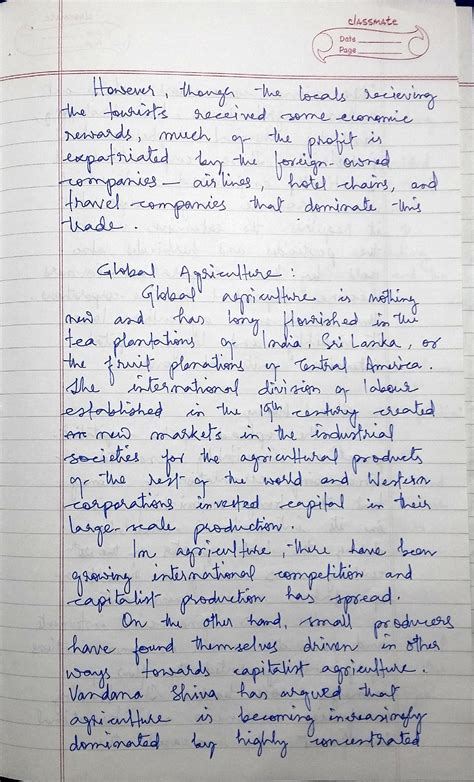 classmate
Date
Page
However, though the locals recieving
the tourists received some economic
rewards, much of the profit is
expatriated by the foreign-owned
companies - airlines, hotel chains, and
travel companies that dominate this
trade.
Global Agriculture:
Global agriculture is nothing
new and has long flourished in the
tea plantations of India, Sri Lanka, or
the fruit planations of Central America.
The international division of labour
established in the 19th century created
new markets in the industrial
societies for the agricultural products
of the rest of the world and Western
corporations invested capital in their
large-scale production.
In agriculture, there have been
growing international competition and
capitalist production has spread.
On the other hand, small producers
have found themselves driven in other
ways towards capitalist agriculture.
Vandana Shiva has argued that
agriculture is becoming increasingly
dominated by highly concentrated